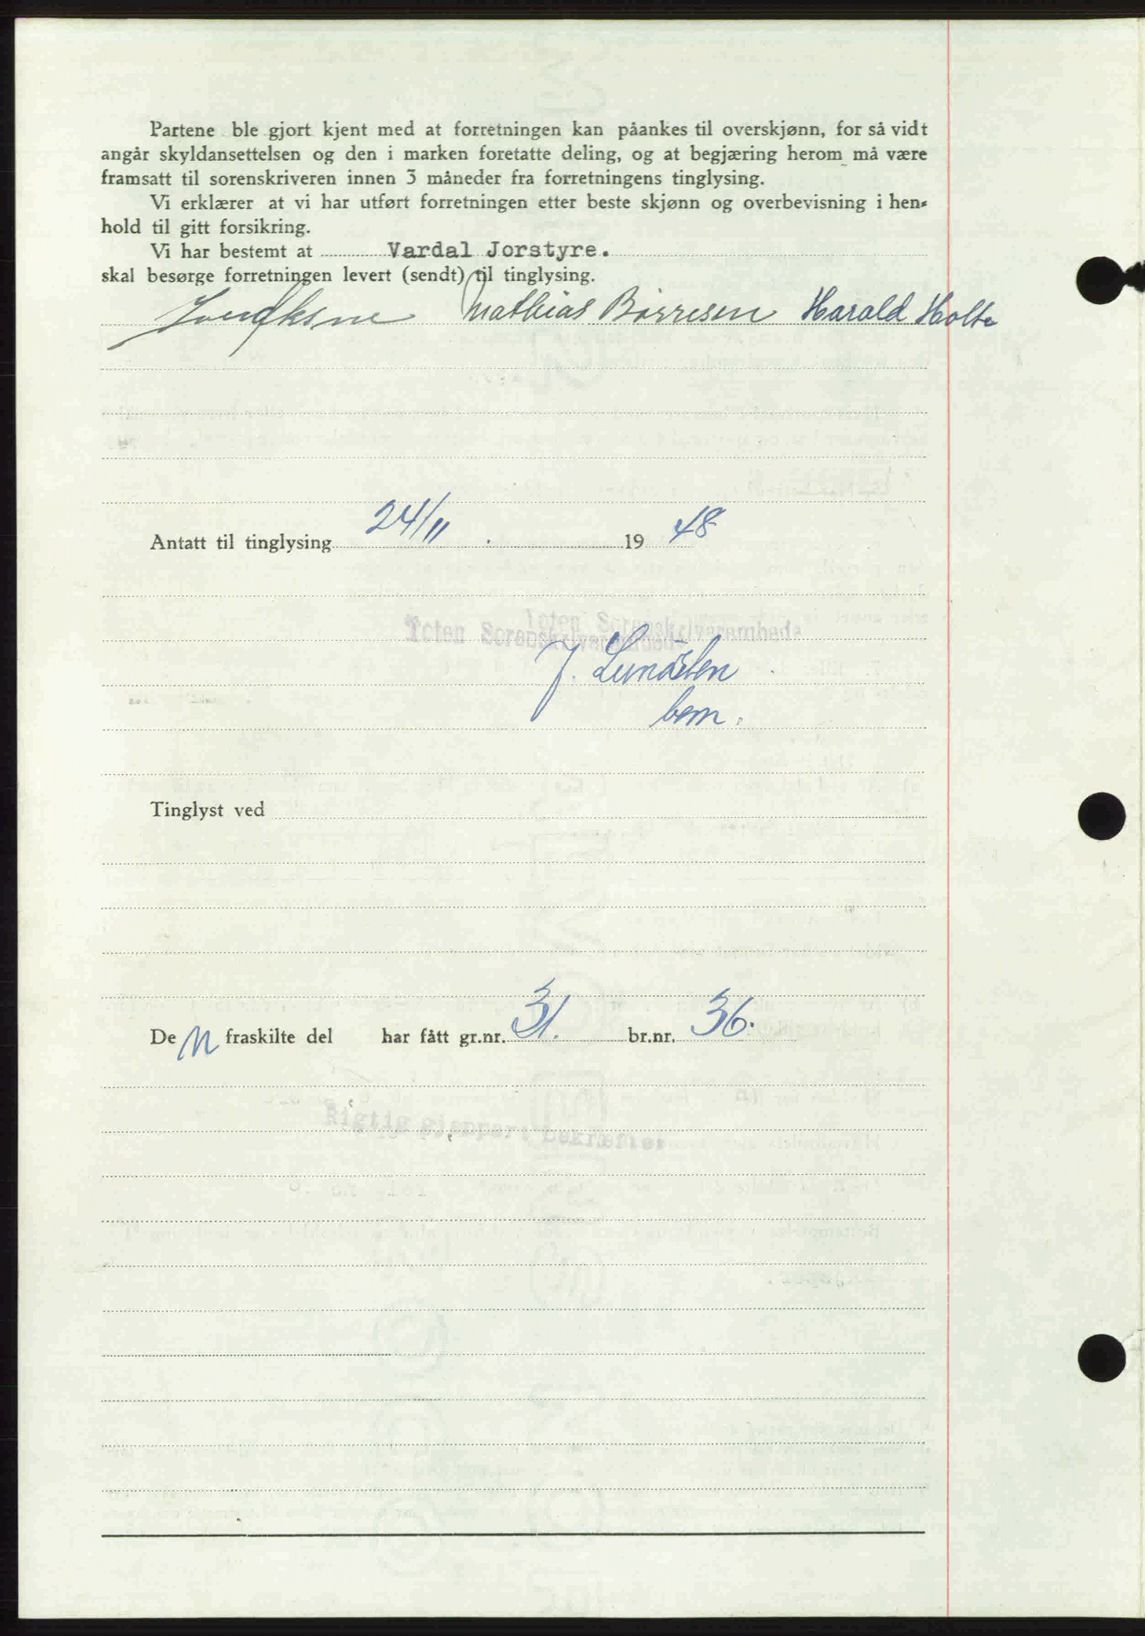 Partene ble gjort kjent med at forretningen kan påankes til overskjønn, for så vidt
angår skyldansettelsen og den i marken foretatte deling, og at begjæring herom må være
framsatt til sorenskriveren innen 3 måneder fra forretningens tinglysing.
Vi erklærer at vi har utført forretningen etter beste skjønn og overbevisning i hen-
hold til gitt forsikring.
Vi har bestemt at Vardal Jorstyre.
skal besørge forretningen levert (sendt) til tinglysing.
Mathias Børresen Harald Holte
Antatt til tinglysing 24/11 . 19 48
Toten Sorenskriverembede
Toten Sorenskriverembede
J. Lundsten
bem.
Tinglyst ved
De n fraskilte del har fått gr.nr. 31. br.nr. 36.
Rigtig gjenpart bekreftes